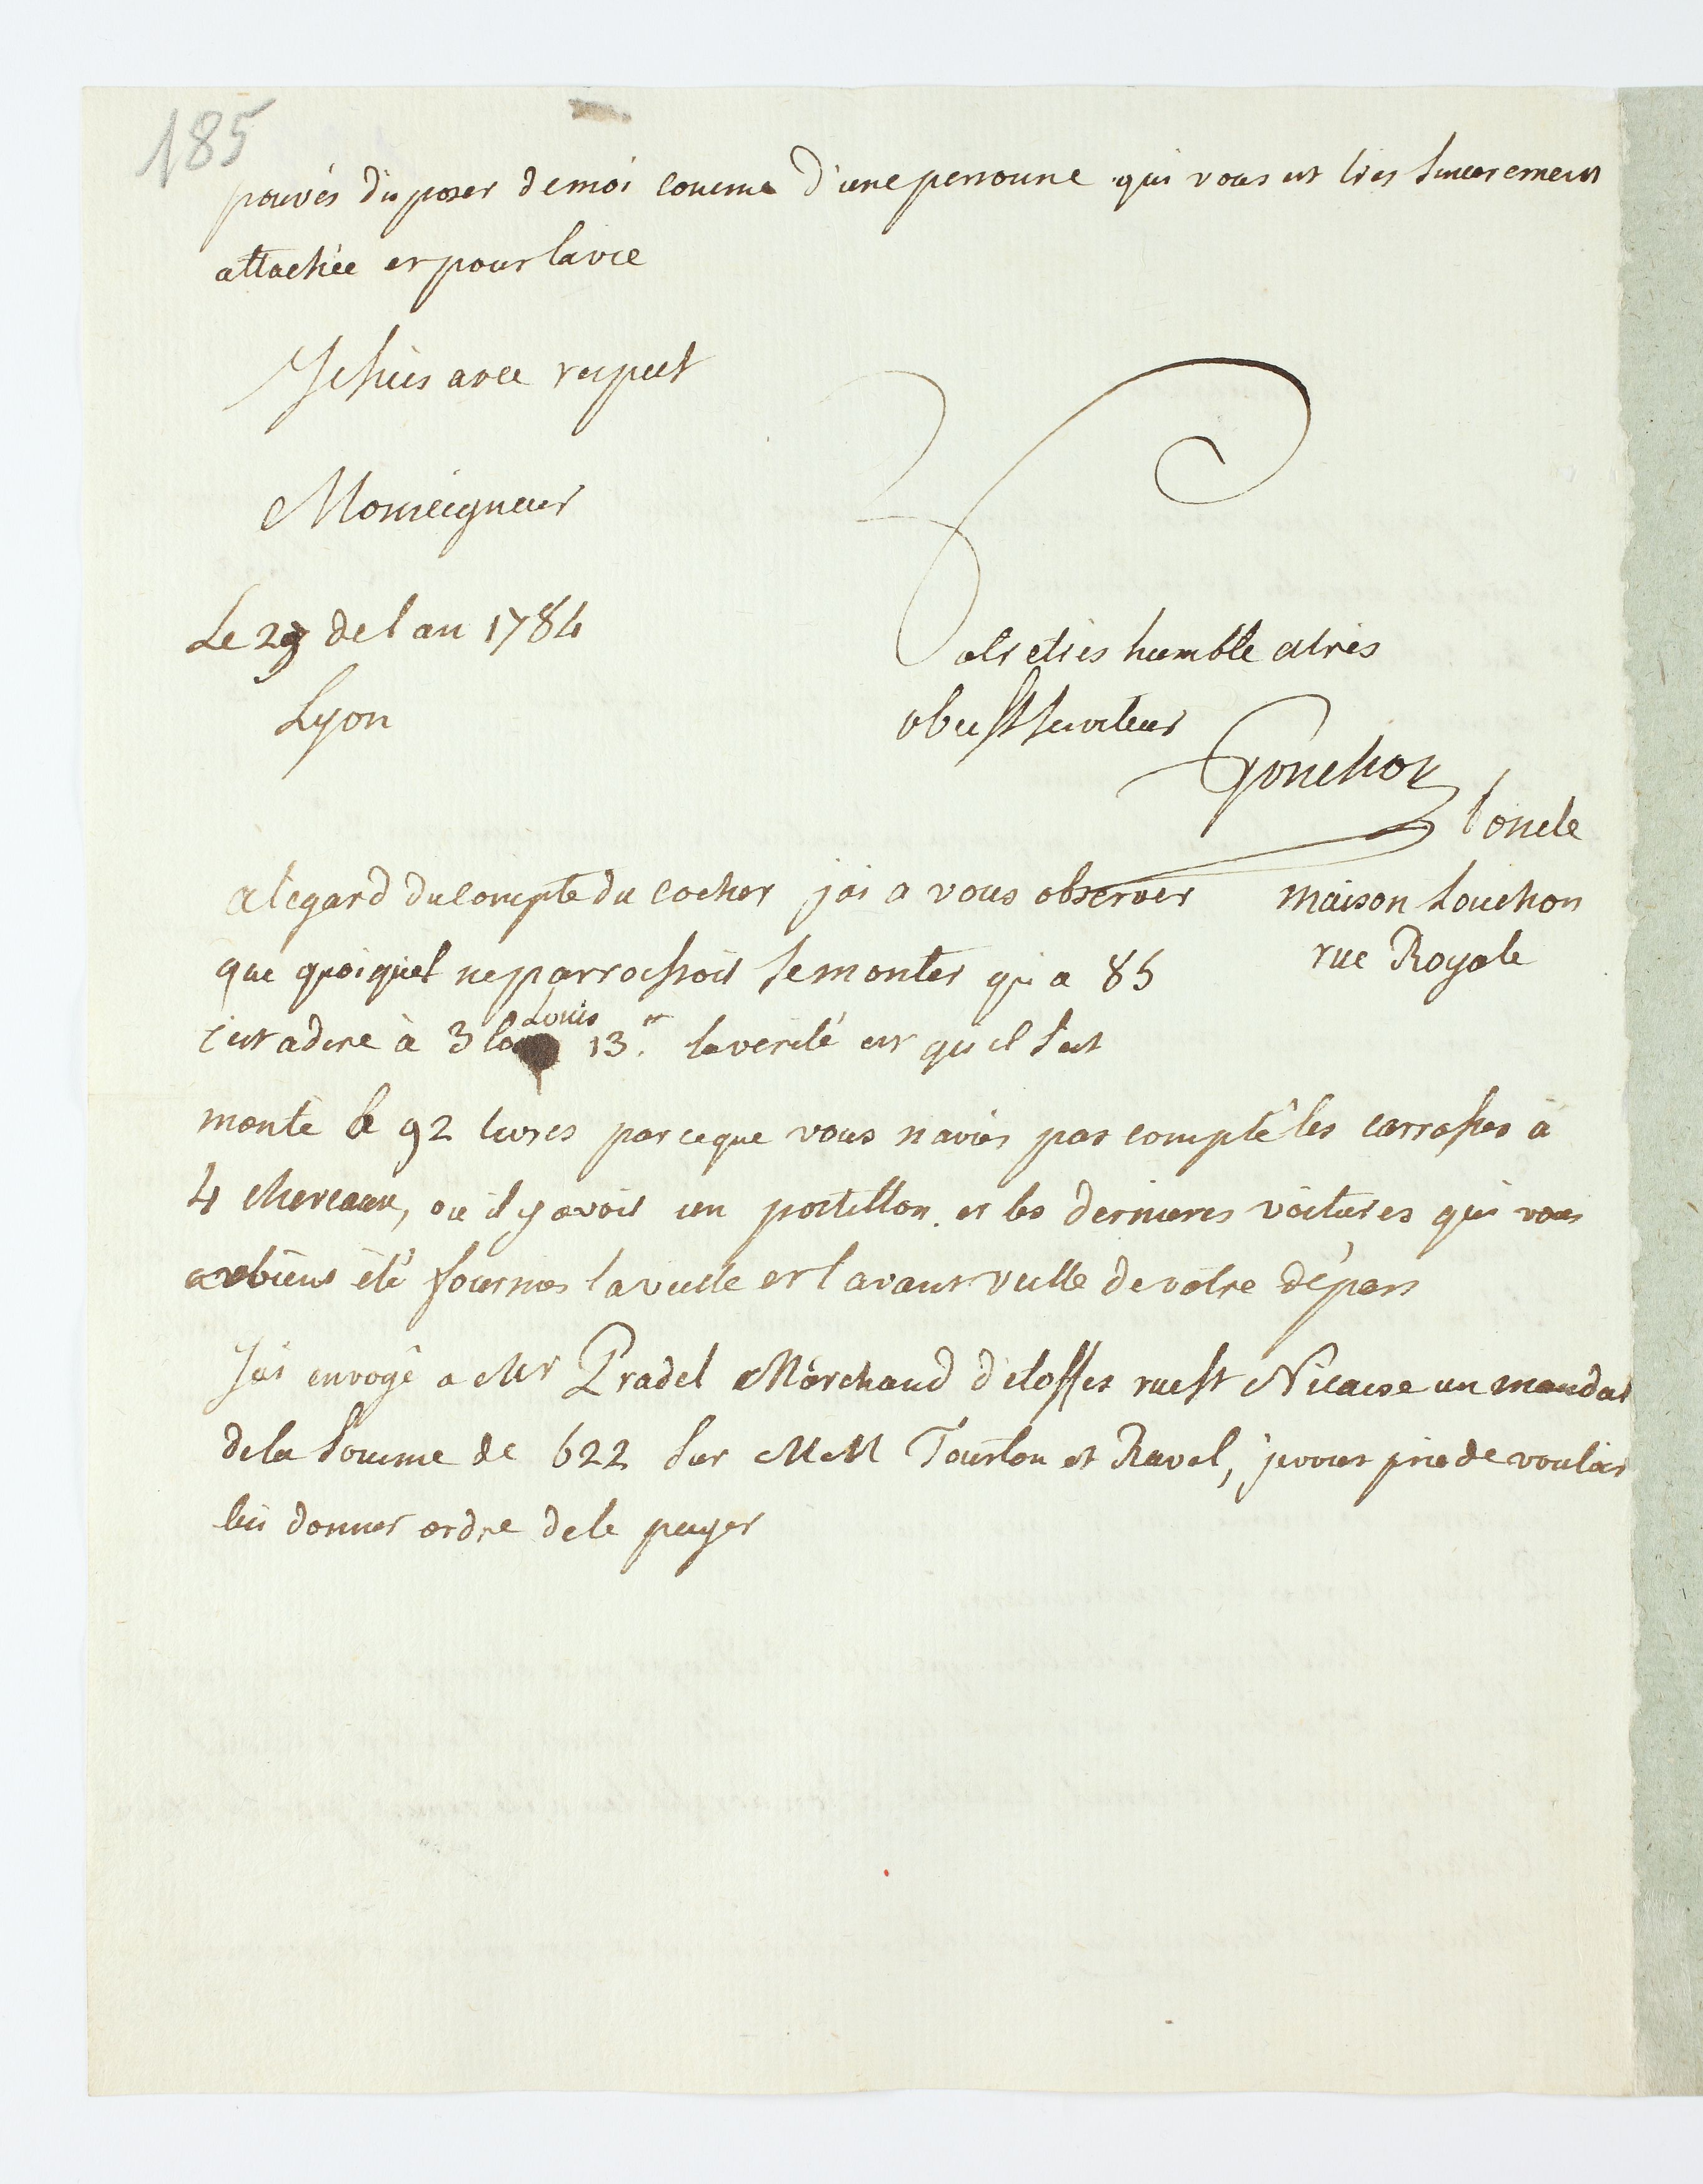 185
pouvés disposer demoi comme d'une personne qui vous est tres sincerement
attachée et pour lavie
Je suis avec respect
Monseigneur
Le 29 de l an 1784
Lyon
votre tres humble et tres
obeisst serviteur
Gonchon
l'oncle
maison Souchon
rue Royale
a legard du compte du cocher jai a vous observer
que quoiquil ne parroissoit se monter qu'a 85
c'est adire à 3 Louis 13.tt la verité est qu il s'est
monté a 92 livres parceque vous n aviés pas compté les carrosses à
4 chevaux, ou il y avoit un postillon, et les dernieres voitures qui vous
ont été fournies la veille et l avant veille de votre départ
J'ai envoyé a Mr Pradel Marchand d'étoffes rue St Nicaise un mandat
dela somme de 622 sur MM Tourton et Ravel, je vous prie de vouloir
lui donner ordre de le payer